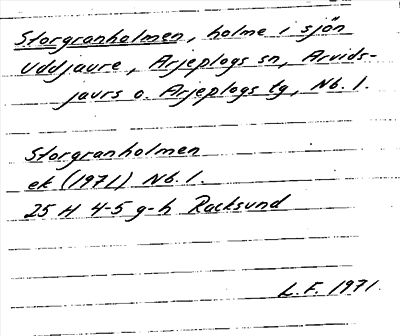 Storgranholmen, holme i sjön
Uddjaure, Arjeplogs sn, Arvids-
jaurs o. Arjeplogs lg, Nb. l.
Storgranholmen
ek (1971) Nb. l.
25 H 4-5 g-h Racksund
L.F. 1971.